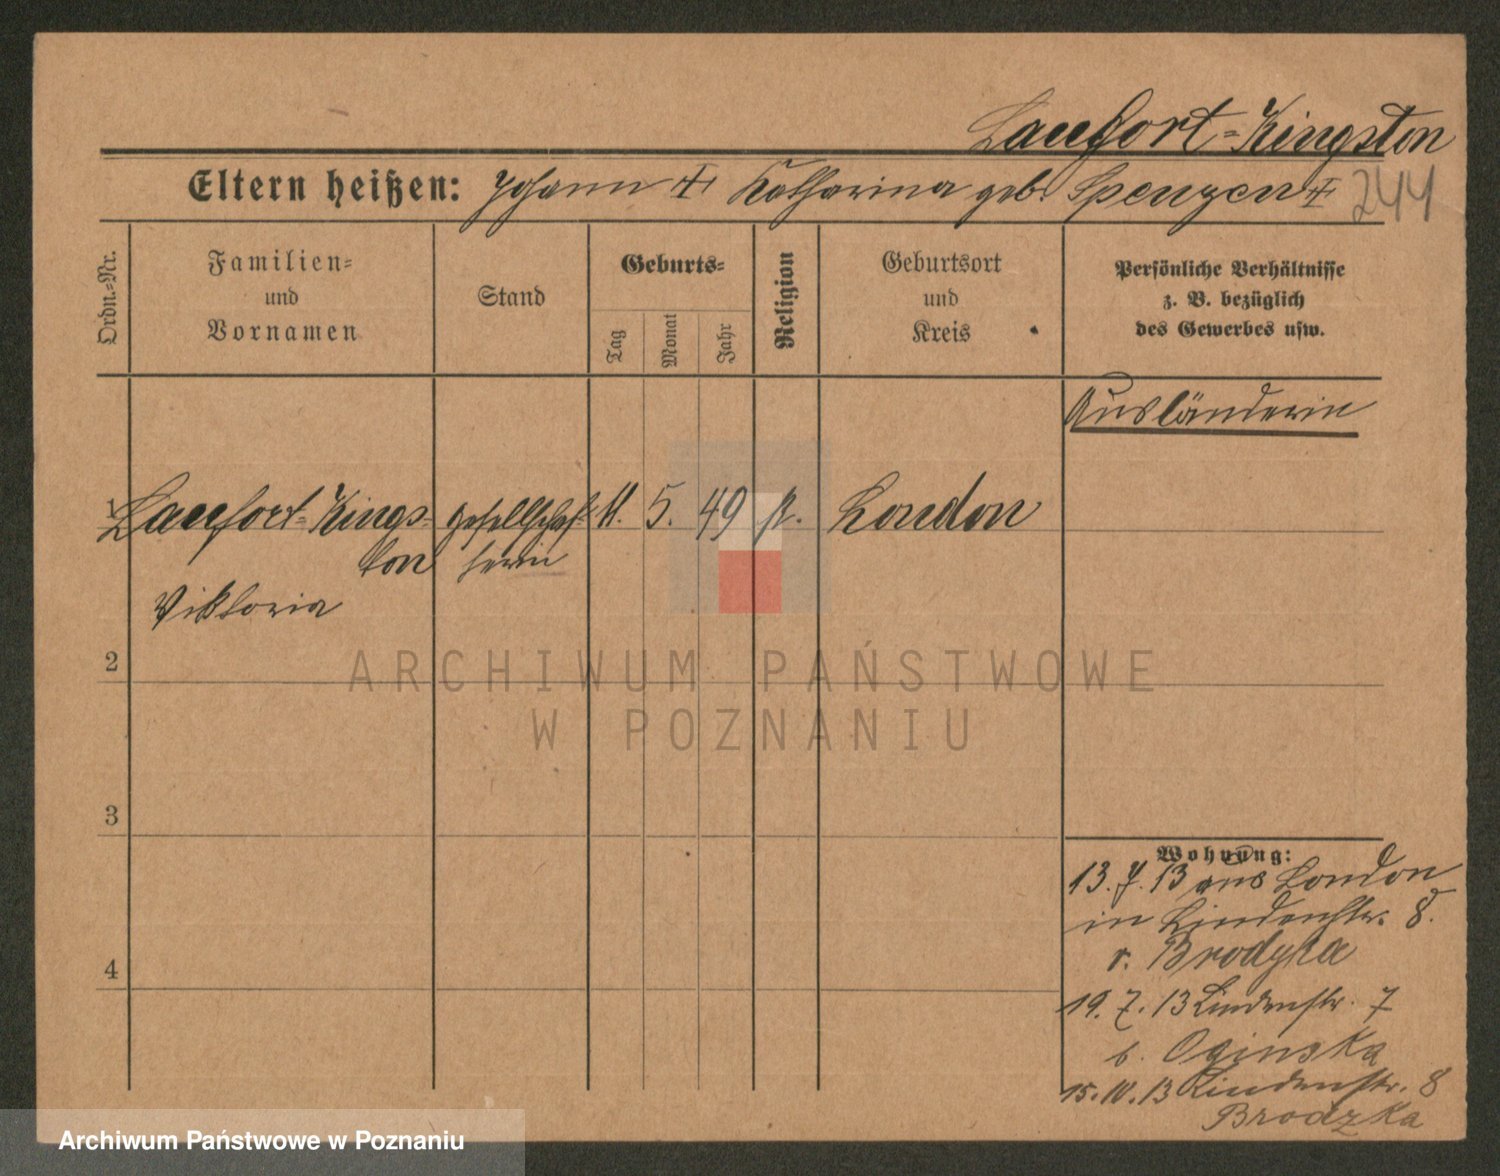 Laufort-Kingston
Eltern heißen: Johann Katharina geb. Spenzen
244
Ordn.-Nr.
Familien-
und
Vornamen
Stand
Geburts-
Tag
Monat
Jahr
Religion
Geburtsort
und
Kreis
Persönliche Verhältnisse
z. B. bezüglich
des Gewerbes usw.
Ausländerin
1
Laufort-Kings- gesellschaf- 11. 5. 49 London
ton terin
Viktoria
2
3
4
Wohnung:
13. 7. 13 aus London
in Lindenstr. 8.
Brodzka
19. 7. 13 Lindenstr. 7
b. Oginska
15. 10. 13 Lindenstr. 8
Brodzka
ARCHIWUM PAŃSTWOWE
W POZNANIU
Archiwum Państwowe w Poznaniu